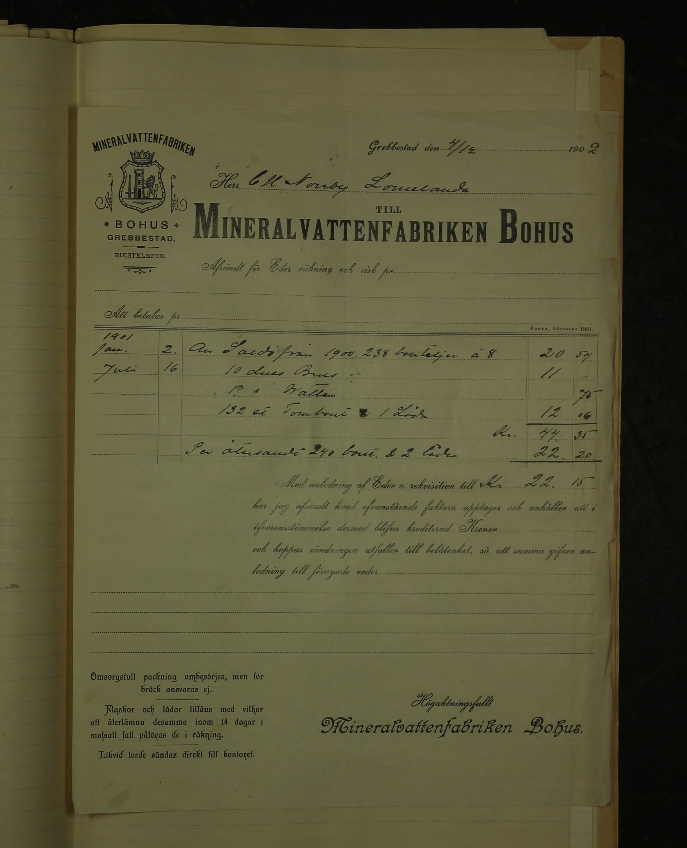 MINERALVATTENFABRIKEN
BOHUS
GREBBESTAD.
RIKSTELEFON.
Grebbestad den 4/12 1902
Herr C M Norby
TILL
MINERALVATTENFABRIKEN BOHUS
Afsändt för Eder räkning och risk pr
Att betalas pr
1901
Jan. 2. An Saldo från 1900, 238 bouteljer à 8 20 54
Juli 16 10 duss Brus 11 -
Watten 75
132 st Tombout 1 Låda 12 06
Kr. 44 35
Per återsändt 240 bout. & 2 lådor 22. 20
Med anledning af Eder v. rekvisition till Kr 22. 15
har jag afsändt hvad ofvanstående faktura upptager och anhåller att i
öfverensstämmelse dermed blifva krediterad Kronor
och hoppas sändningen utfaller till belåtenhet, så att samma gifver an-
ledning till förnyade order.
Omsorgsfull packning ombesörjes, men för
bräck ansvaras ej.
Flaskor och lådor tillåns med vilkor
att återlämna desamma inom 14 dagar i
motsatt fall påföras de i räkning.
Likvid torde sändas direkt till kontoret.
Högaktningsfullt
Mineralvattenfabriken Bohus.